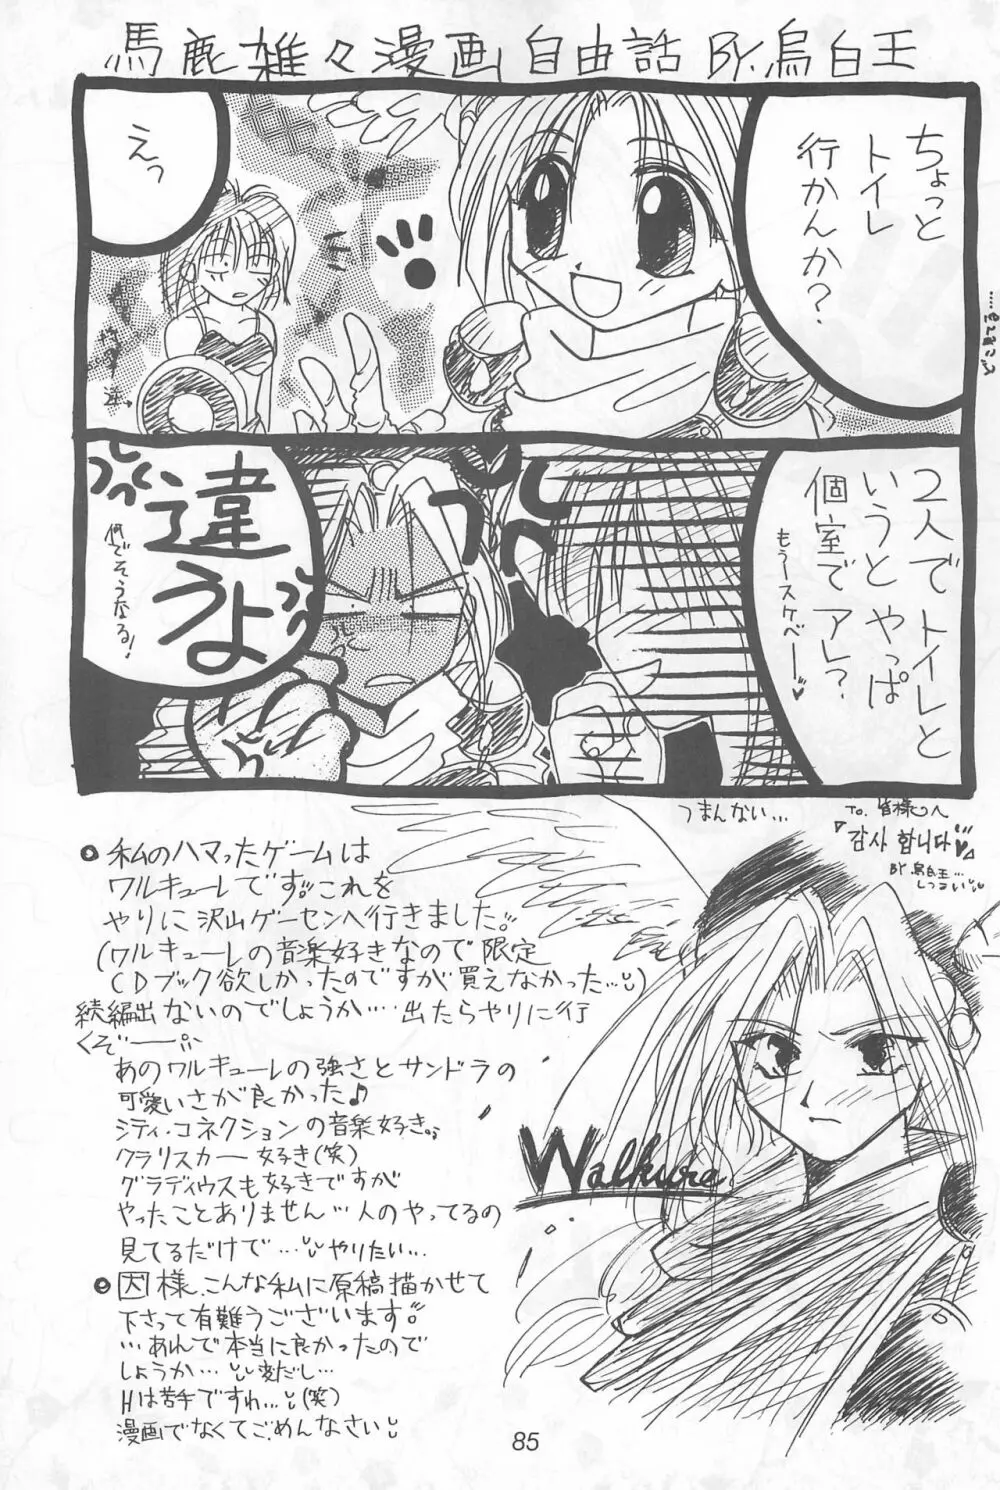 馬鹿雑々漫画自由話 BY.烏白王
ちょっと
トイレ
行かんか?
えっ
2人でトイレと
いうとやっぱ
個室でアレ?
もうースケベー♥
違
うよ
何でそうなる!
つまんない…
To. 皆様へ
감사 합니다
BY 烏白王…
しつこい
●私のハマったゲームは
ワルキューレです。これを
やりに沢山ゲーセンへ行きました。
(ワルキューレの音楽好きなので限定
CDブック欲しかったのですが買えなかった…)
続編出ないのでしょうか……出たらやりに行
くぞー
あのワルキューレの強さとサンドラの
可愛いさが良かった♪
シティ・コネクションの音楽好き。
クラリスカー 好き(笑)
グラディウスも好きですが
やったことありません…人のやってるの
見てるだけで…やりたい…
Walkure
●因様、こんな私に原稿描かせて
下さって有難うございます。
…あんで本当に良かったので
しょうか…
Hは苦手ですわ…(笑)
漫画でなくてごめんなさい
85